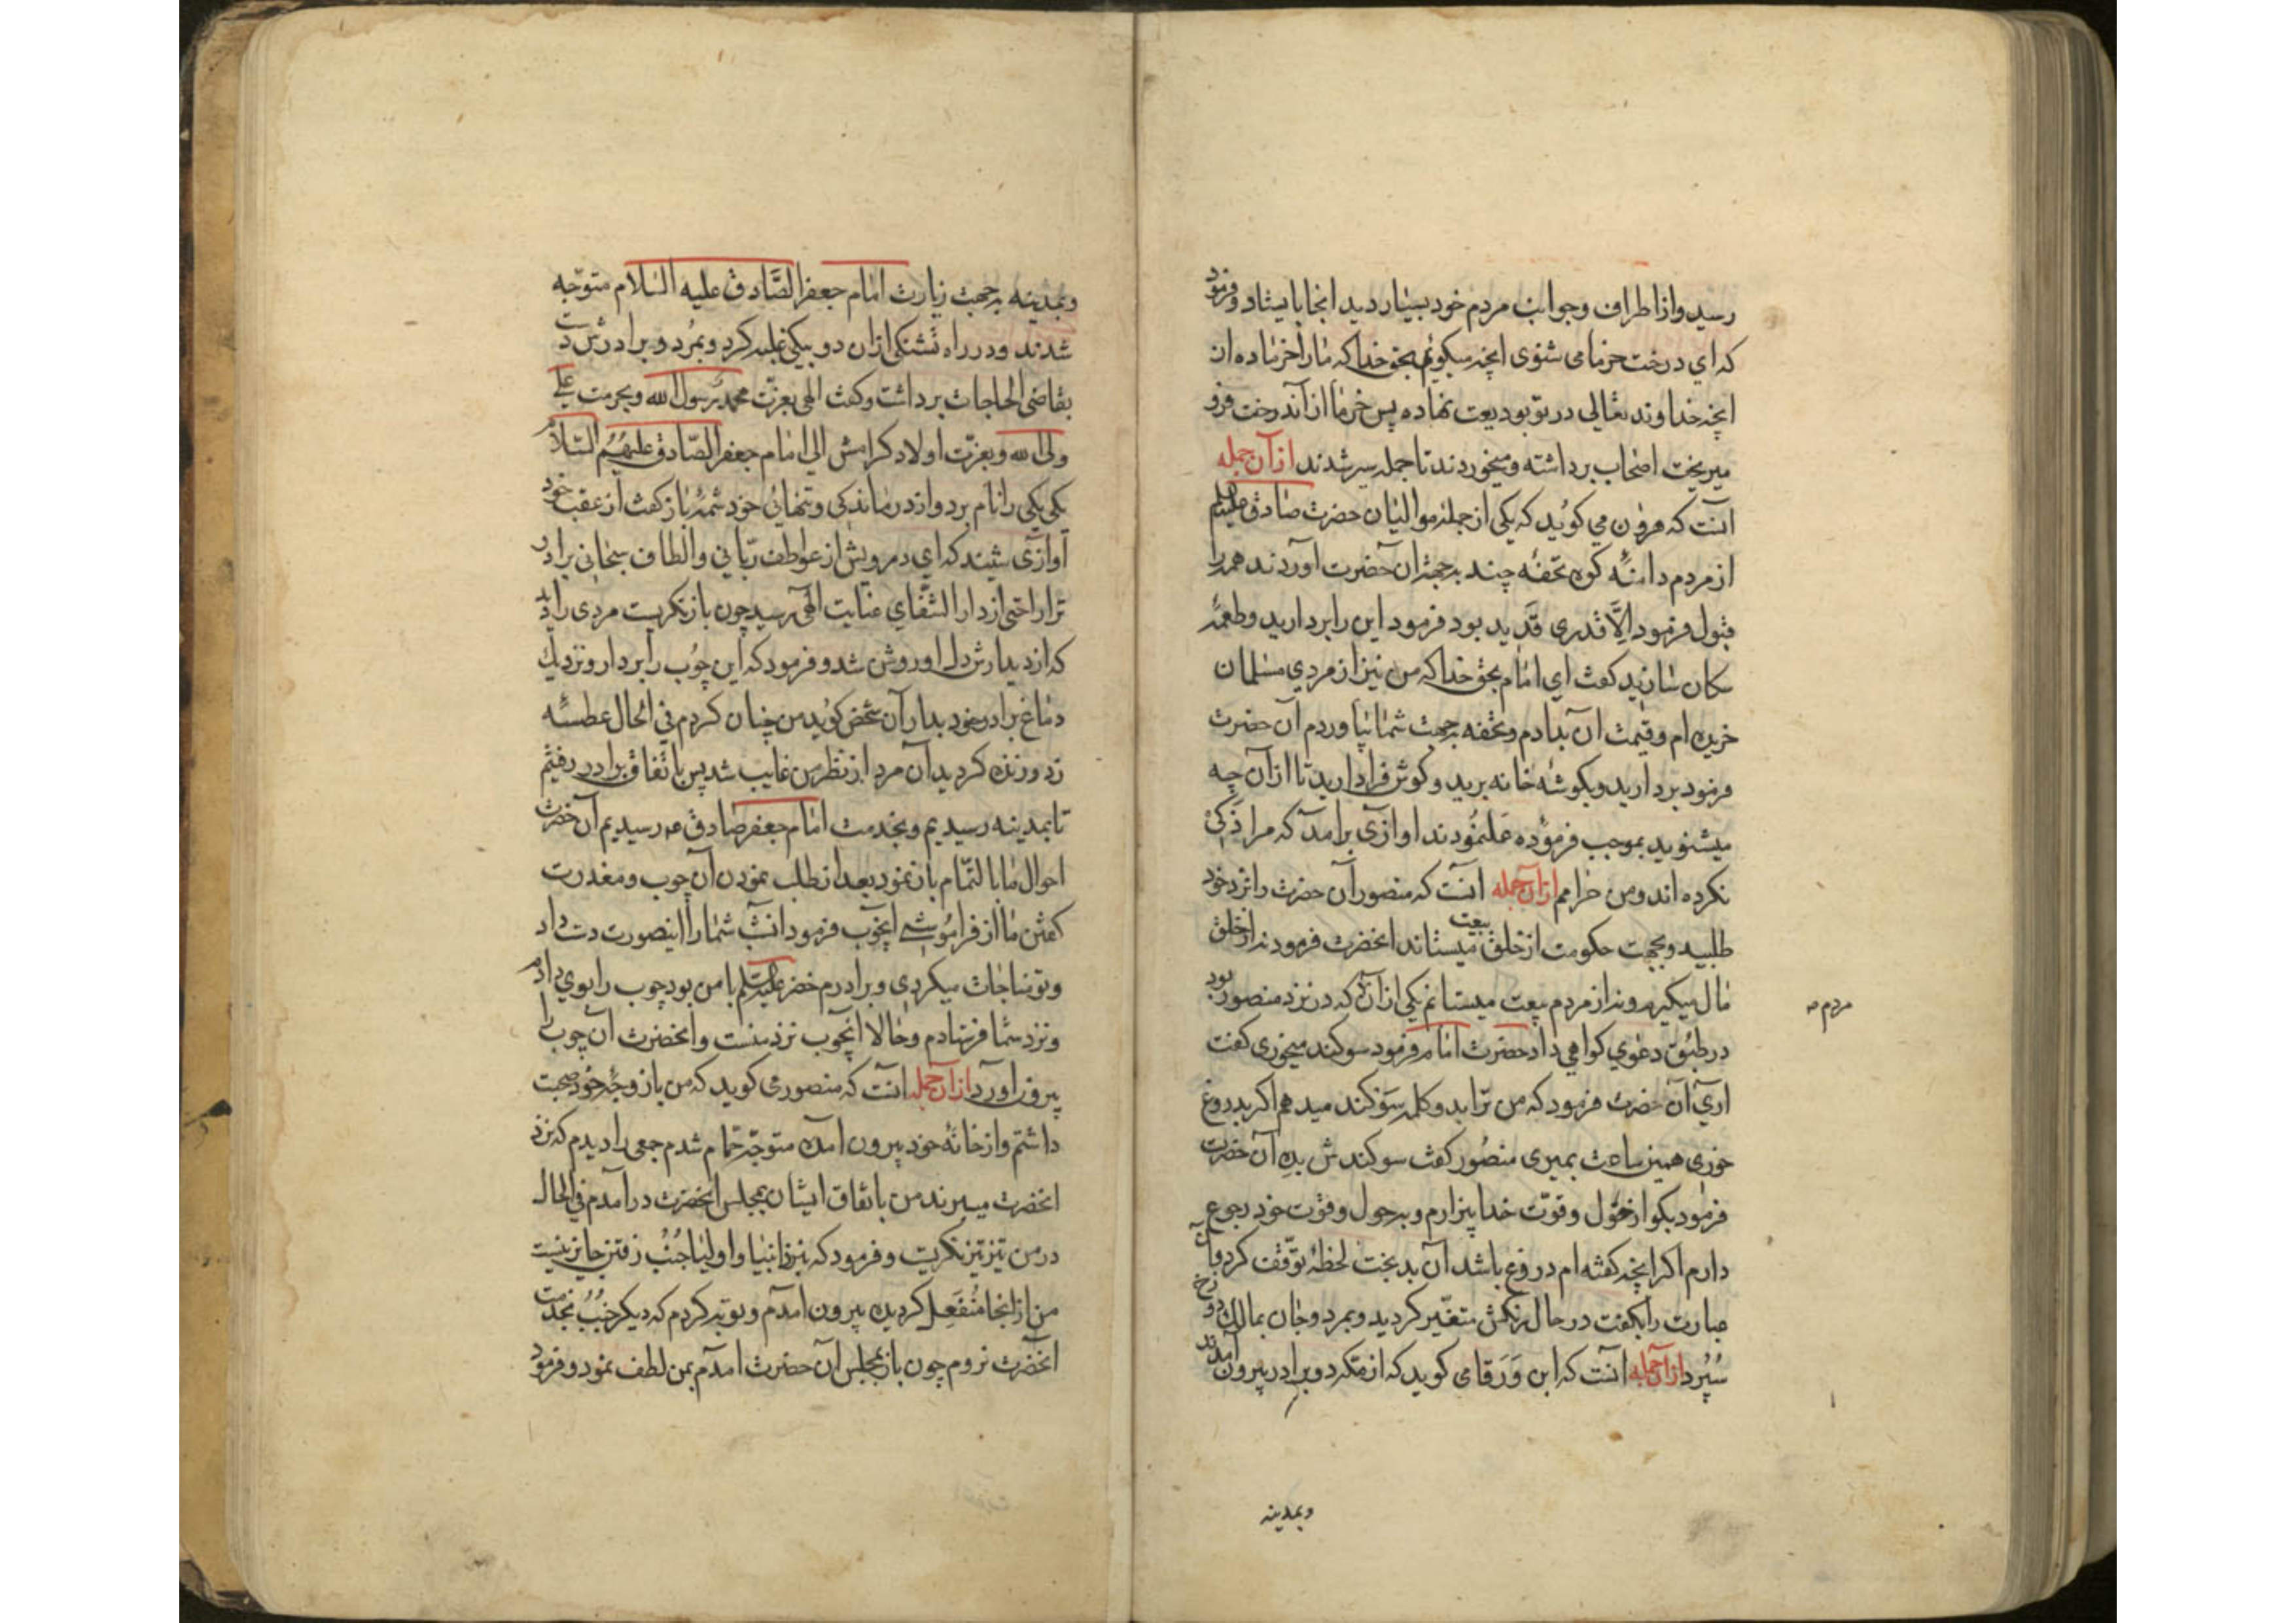 رسید و از اطراف و جوانب مردم خود بسیار دید انجا بایستاد و فرمود
که ای درخت خرما می شنوی انچه میکویم بحق خدا که ما را خرما ده ان
انچه خداوند تعالی در تو بودیعت نهاده پس خرما از آندرخت فرو
میریخت اصحاب برداشته و میخوردند تا جمله سیر شدند ازآن جمله
آنست که هرون می کوید که یکی از جمله موالیان حضرت صادق علیه السلم
از مردم دامنه کوه تحفه چند بجهة ان حضرت آوردند همه را
قبول فرمود الّا قدری قدید بود فرمود این را بردارید و طعمه
سکان سازید کفت ای امام بحق خدا که من نیز از مردی مسلمان
خریده ام و قیمت آن بدادم و تحفه بجهت شما بیاوردم آن حضرت
فرمود بردارید و بکوشه خانه برید و کوش فرا دارید تا از آن چه
میشنوید بموجب فرموده عمل نمودند اوازی برامد که مرا ذکی
نکرده اند و من حرامم ازآن جمله آنست که منصور آن حضرت را نزد خود
طلبید و بجهت حکومت از خلق بیعت میستاند انحضرت فرمودند از خلق
مال میکیرند و از مردم بیعت میستانم یکی از آن که در نزد منصور بود
مردم صه
در طبق دعوی کواهی داد حضرت امام فرمود سوکند میخوری کفت
اری آن حضرت فرمود که من ترا بدو کلمه سوکند میدهم اکر بدروغ
خوری همین ساعت بمیری منصور کفت سوکندش بده آن حضرت
فرمود بکو از حول و قوّت خدا بیزارم و بر حول و قوت خود رجوع
دارم اکر انچه کفته ام دروغ باشد آن بدبخت لحظه توقّف کرد و آن
عبارت را بکفت در حال رنکش متغیّر کردید و بمرد و جان بمالک دوزخ
سُپُرد ازآن جمله آنست که ابن وَرَقا می کوید که از مکه دو برادر بیرون آمدند
و بمدینه
و بمدینه بجهت زیارت امام جعفر الصّادق علیه السّلام متوجّه
شدند و در راه تشنکی از ان دو بیکی غلبه کرد و بمُرد و برادرش دست
بقاضی الحاجات برداشت و کفت الهی بعزّت محمد رسول الله و بحرمت علی
ولی الله و بعزّت اولاد کرامش الی امام جعفر الصّادق علیهُمُ السّلام
یکی یکی را نام برد و از درماندکی و تنهائی خود شمّهٔ باز کفت از عقب خود
آوازی شنید که ای درویش از عواطف ربّانی و الطاف سبحانی برادر
ترا راحتی از دار الشّفای عنایت الهی رسید چون باز نکریست مردی را دید
که از دیدارش دل او روشن شد و فرمود که این چوُب را بردار و نزدیک
دماغ برادر خود بدار آن شخص کوید من چنان کردم فی الحال عطسهٔ
زد و زنده کردید آن مرد از نظر من غایب شد پس باتفاق برادر رفتیم
تا بمدینه رسیدیم و بخدمت امام جعفر صادق عه رسیدیم آن حضرت
احوال ما بالتّمام باز نمود بعد از طلب نمودن آن چوب و معذرت
کفتن ما از فراموشی انچوب فرمود انشب شما را اینصورت دست داد
و تو مناجات میکردی و برادرم خضر علیه السلم با من بود چوب را بوی دادم
و نزد شما فرستادم و حالا انچوب نزد منست و انحضرت آن چوب را
بیرون اورد ازآن جمله آنست که منصوری کوید که من با زوجهٔ خود صحبت
داشتم و از خانهٔ خود بیرون امده متوجّه حمّام شدم جمعی را دیدم که نزد
انحضرت میرند من باتفاق ایشان بمجلس انحضرت درامدم فی الحال
در من تیز تیز نکریست و فرمود که نزد انبیا و اولیا جُنُب رفتن جایز نیست
من از انجا مُنفَعِل کردیده بیرون امدم و توبه کردم که دیکر جُنُب بخدمت
آنحضرت نروم چون باز بمجلس آن حضرت امدم بمن لطف نمود و فرمود